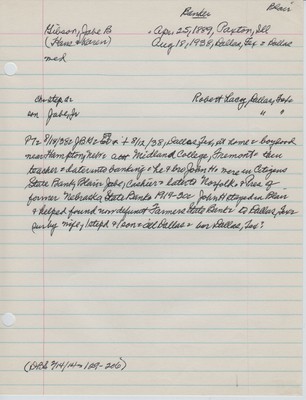 Blair
Banker
Gibson, Jabe B * Apr 25, 1889, Paxton, Ill
(Hans Karen) Aug 18, 1938, Dallas, Tex & Dallas
med
ch=step dr Robert Lacy, Dallas, Tex
son Jabe, Jr " "
PT= 8/18/38: JBG= 60 + 8/12/38, Dallas, Tex, at home & boyhood
near Hampton, Neb & att Midland College, Fremont & then
teacher & later into banking & he & bro John H were in Citizens
State Bank, Blair, Jabe, Cashier & later to Norfolk & Pres of
former Nebraska State Bank & 1919-20= John H stayed in Blair
& helped found now defunct Farmers State Bank & to Dallas, Tex &
surv by wife, 1 steph & 1 son & all Dallas & bur Dallas, Tex.